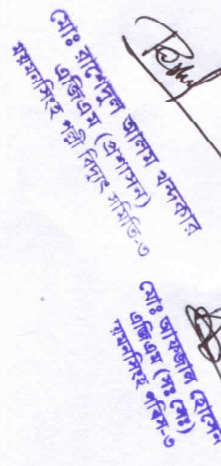 মোঃ রাশেদুল আলম খন্দকার
এজিএম (প্রশাসন)
ময়মনসিংহ পল্লী বিদ্যুৎ সমিতি-৩
মোঃ আফজাল হোসেন
এজিএম (সঃ সেঃ)
ময়মনসিংহ পবিস-৩